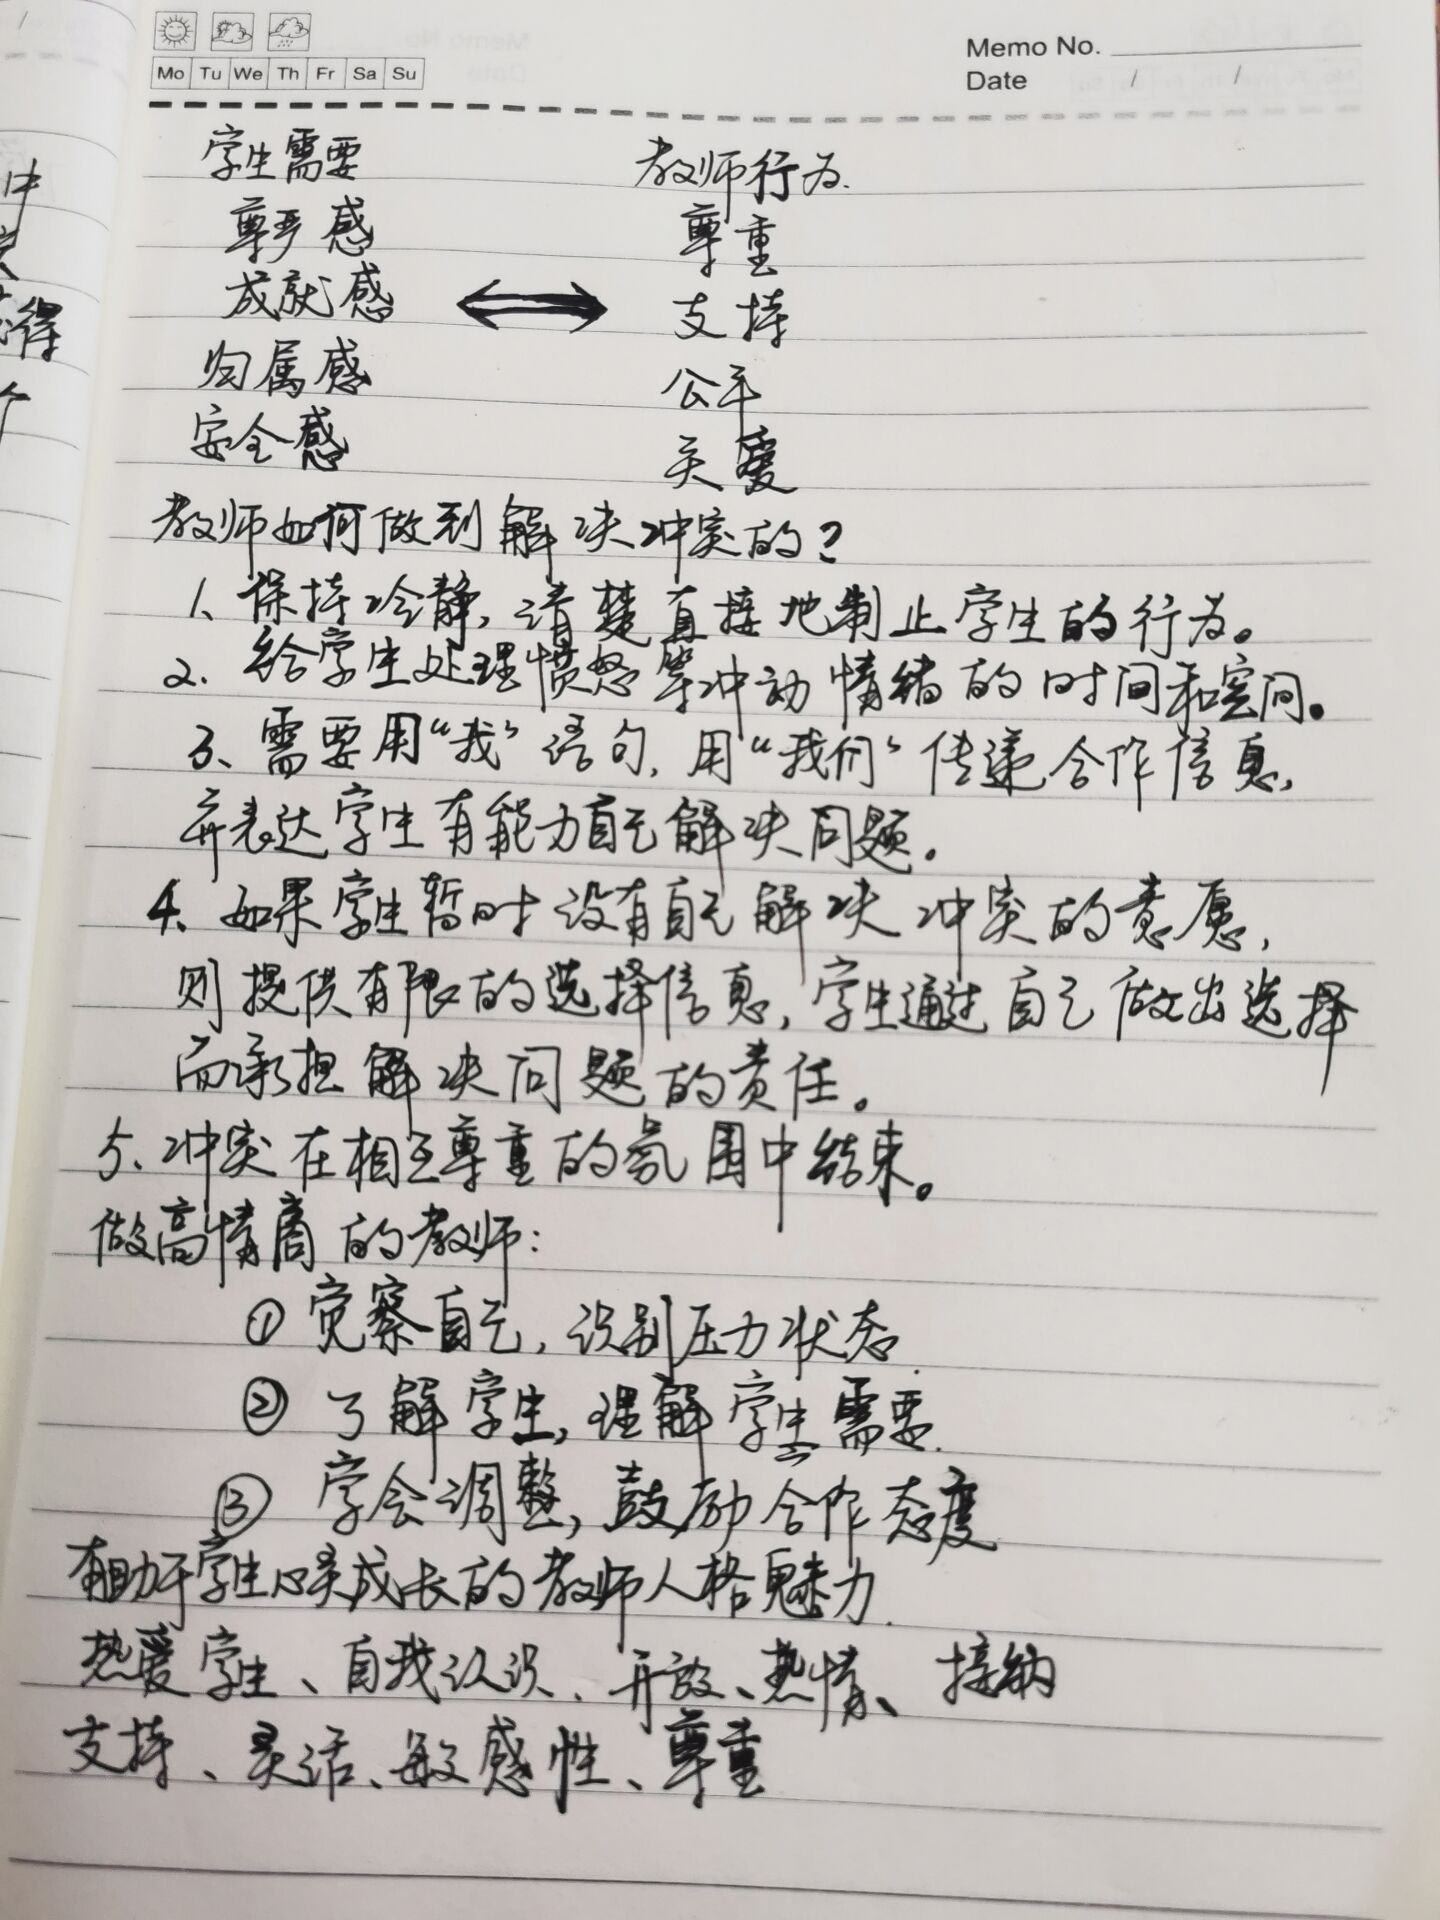 Mo Tu We Th Fr Sa Su
Memo No.
Date / /
学生需要 教师行为.
尊严感 尊重
成就感 支持
归属感 公平
安全感 关爱
教师如何做到解决冲突的?
1、保持冷静,清楚直接地制止学生的行为。
2.给学生处理愤怒等冲动情绪的时间和空间。
3、需要用“我”语句,用“我们”传递合作信息,
并表达学生有能力自己解决问题。
4、如果学生暂时没有自己解决冲突的意愿,
则提供有限的选择信息,学生通过自己做出选择
而承担解决问题的责任。
5、冲突在相互尊重的氛围中结束。
做高情商的教师:
①觉察自己,识别压力状态.
②了解学生,理解学生需要.
③学会调整,鼓励合作态度
有助于学生心灵成长的教师人格魅力.
热爱学生、自我认识、开放、热情、接纳
支持、灵活、敏感性、尊重
中
得
个